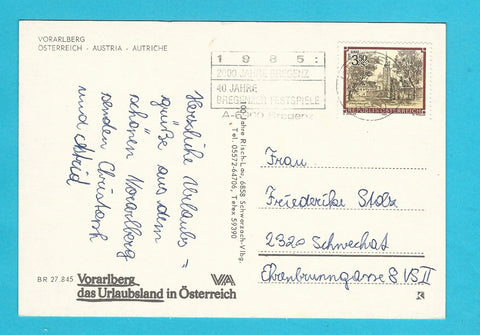 VORARLBERG
ÖSTERREICH - AUSTRIA - AUTRICHE
Herzliche Urlaubs =
grüße aus dem
schönen Vorarlberg
senden Christoph
und Astrid
BR 27.845 Vorarlberg
das Urlaubsland in Österreich
100 Jahre Risch-Lau, 6858 Schwarzach-Vlbg.
Tel. 05572-64706, Telex 59390
1985:
2000 JAHRE BREGENZ
40 JAHRE
BREGENZER FESTSPIELE
A-6900 Bregenz
REPUBLIK ÖSTERREICH
Frau
Friederike Stolz
2320 Schwechat